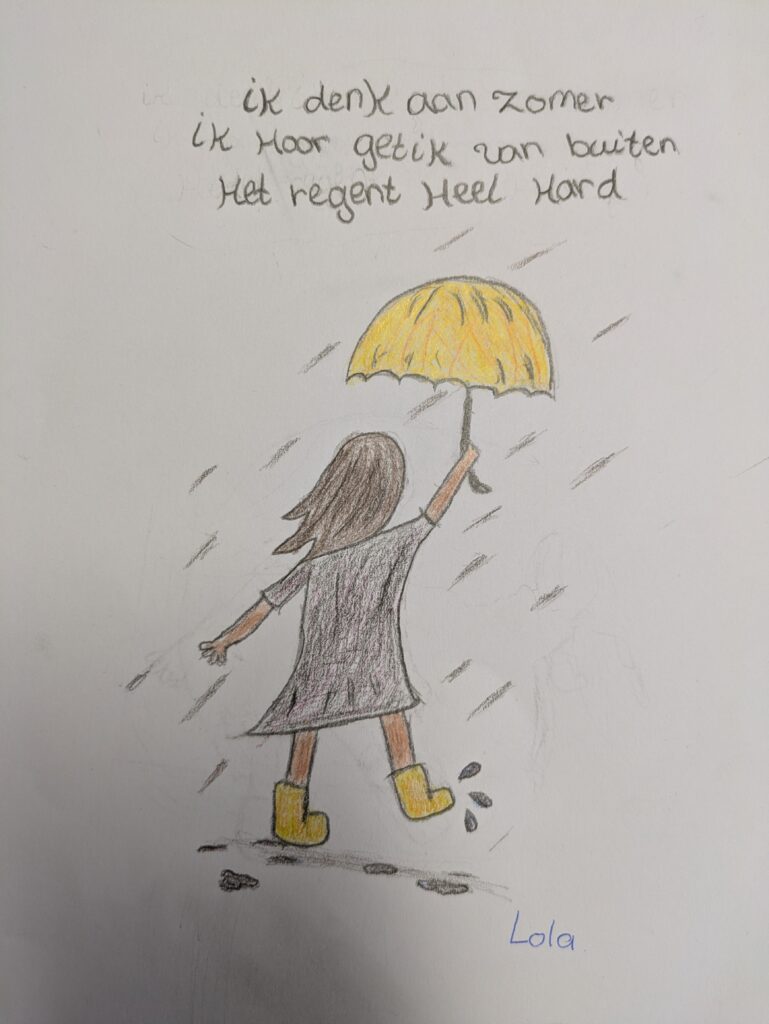 ik denk aan zomer
ik Hoor getik van buiten
Het regent Heel Hard
Lola